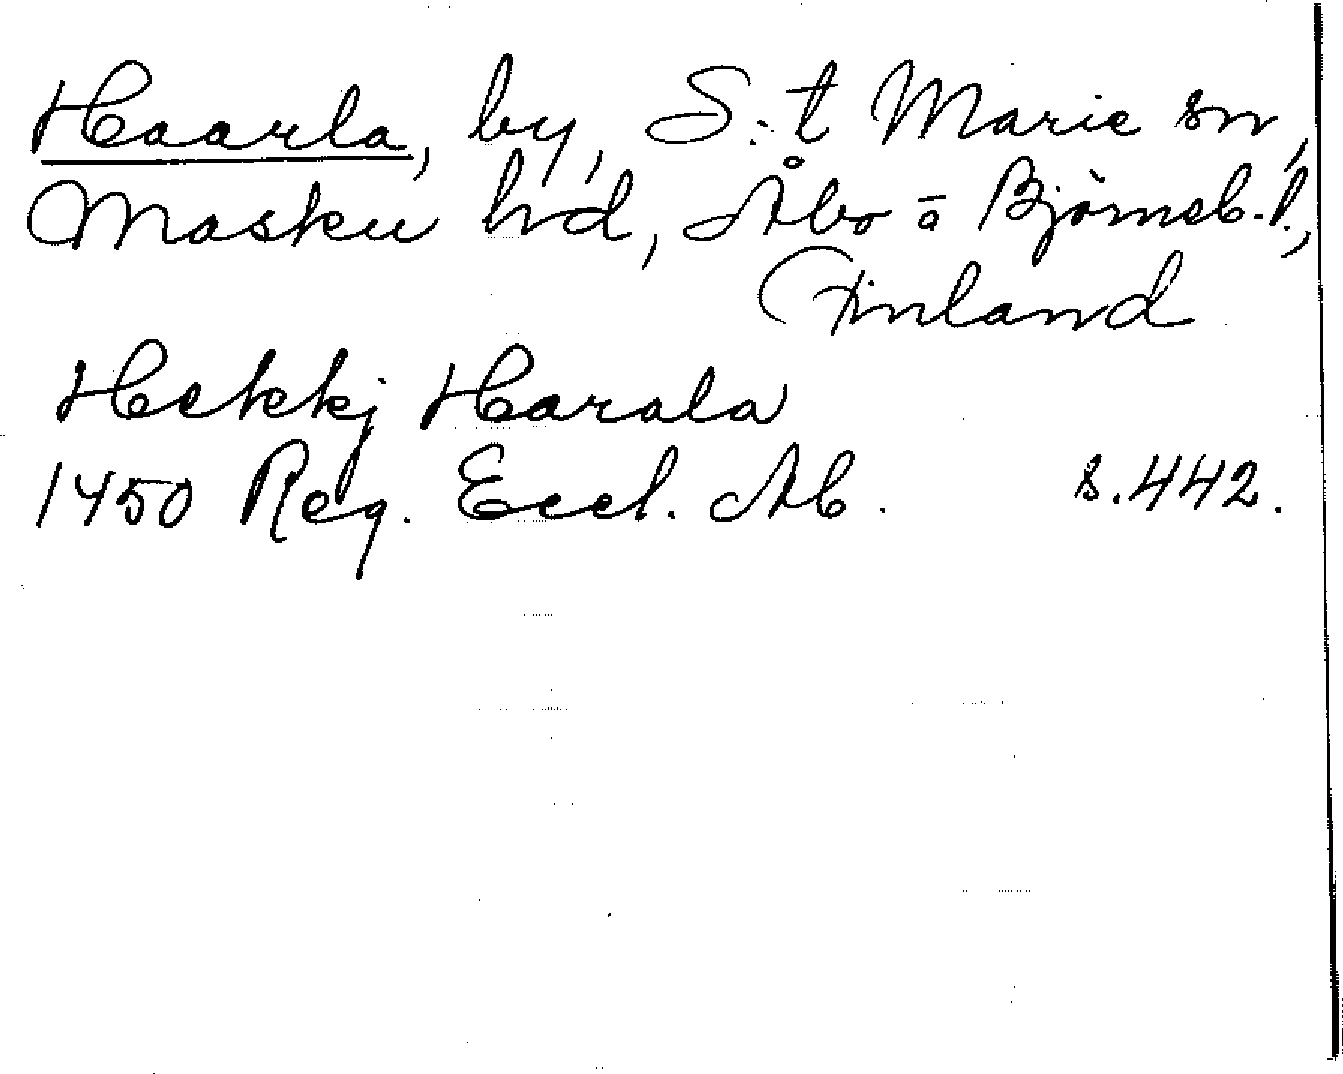 Haarla, by, S:t Marie sn,
Masku hd, Åbo o Björneb. l.,
Finland
Hekkj Harala
1450 Reg. Eccl. Ab. s. 442.